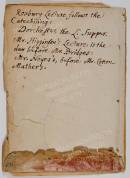 Roxbury Lecture, follows the
Catechising:
Dorchester the L. Supper.
Mr. Higginson's Lecture is the
day before Mr. Bridges.
Mr. Noyes's, before Mr. Coton
Mather's.